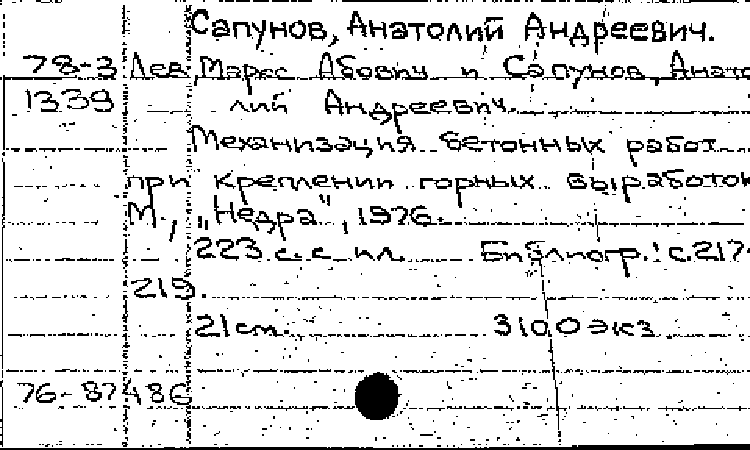 Сапунов, Анатолий Андреевич.
78-3 Лев, Марес Абович и Сапунов, Анато
1339 лий Андреевич.
Механизация бетонных работ
при креплении горных выработок
М., „Недра", 1976.
223 с. с ил. Библиогр.: с. 217-
219.
21 см. 3100 экз
76-87486